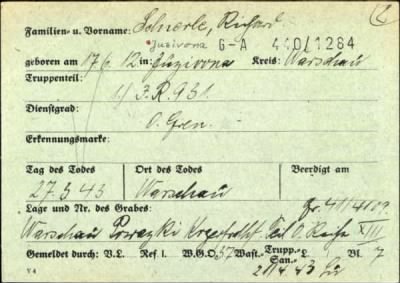 Familien- u. Vorname: Scherle, Richard
Juzivona G-A 440/1284
geboren am 17.6.12 in Juzivona Kreis: Warschau
Truppenteil: 1/ J.R. 931.
Dienstgrad: O. Gren.
Erkennungsmarke:
Tag des Todes Ort des Todes Beerdigt am
27.3.43 Warschau
Lage und Nr. des Grabes: Gr. 41/4109.
Warschau Powazki Teil O. Reihe XIII
Gemeldet durch: V.L. Ref I. W.G.O. 37 Wast.- Trupp.- San.- L. Bl. 7
21.4.43
V 4